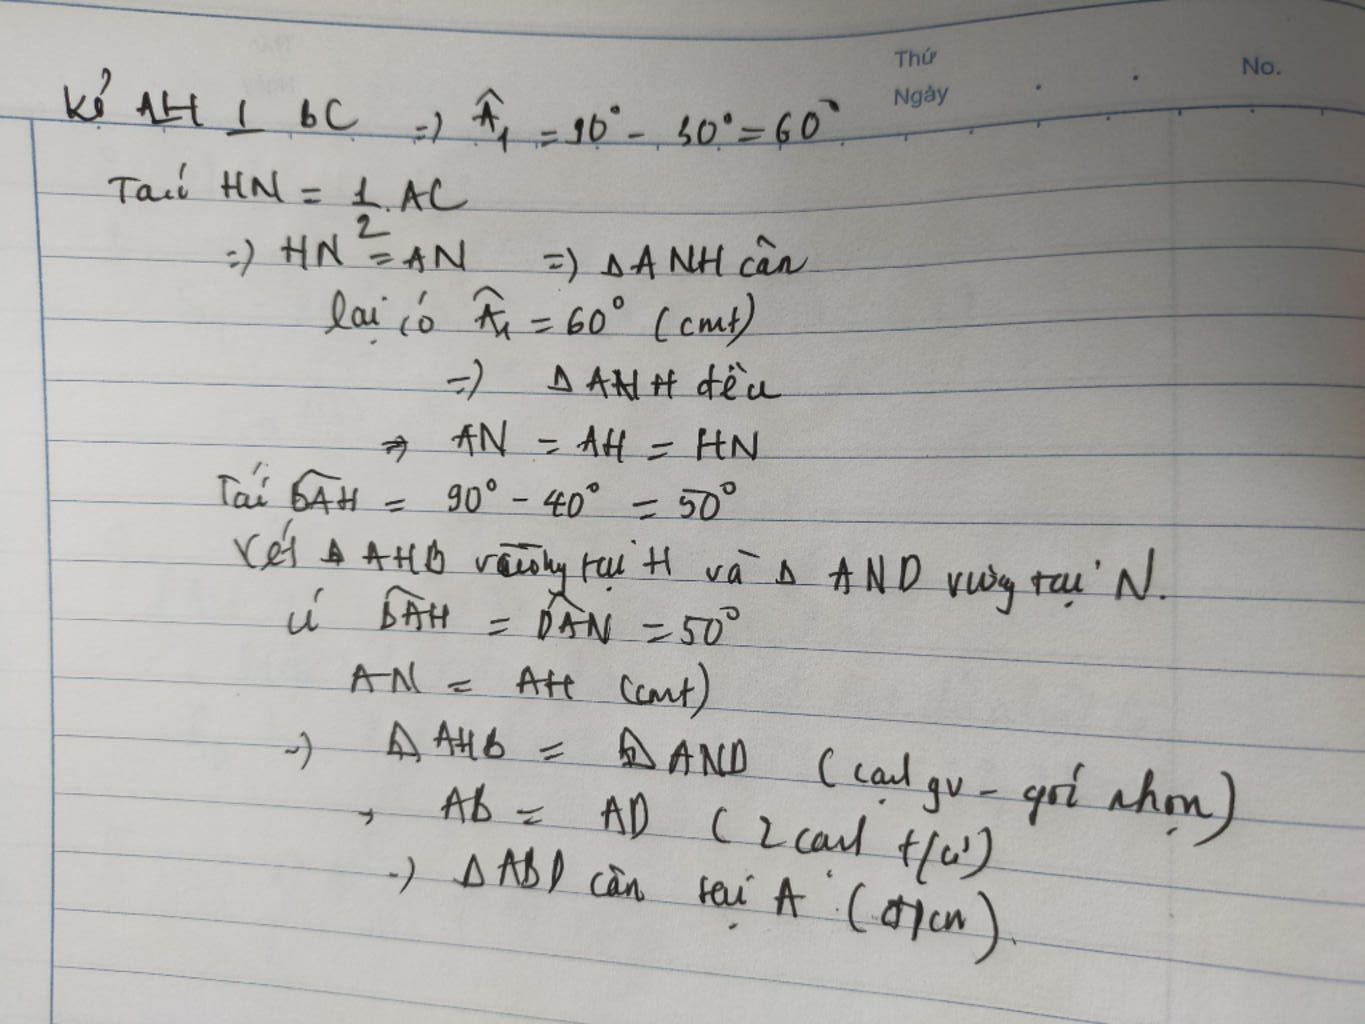 Thứ
Ngày
No.
Kẻ AH ⊥ BC => Â₁ = 90° - 30° = 60°
Ta có HN = 1/2 . AC
=> HN = AN => Δ ANH cân
lại có Â₁ = 60° (cmt)
=> Δ ANH đều
=> AN = AH = HN
Ta có BAH = 90° - 40° = 50°
Xét Δ AHB vuông tại H và Δ AND vuông tại N.
có BAH = DAN = 50°
AN = AH (cmt)
=> Δ AHB = Δ AND (cạnh gv - góc nhọn)
=> AB = AD (2 cạnh t/ư)
=> Δ ABD cân tại A (đpcm).